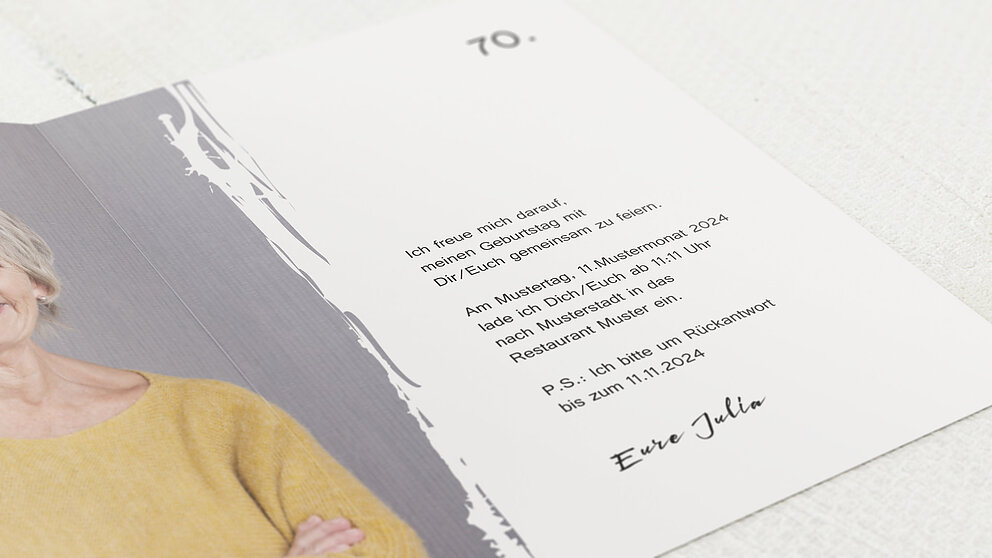 70.
Ich freue mich darauf,
meinen Geburtstag mit
Dir/Euch gemeinsam zu feiern.
Am Mustertag, 11.Mustermonat 2024
lade ich Dich/Euch ab 11:11 Uhr
nach Musterstadt in das
Restaurant Muster ein.
P.S.: Ich bitte um Rückantwort
bis zum 11.11.2024
Eure Julia